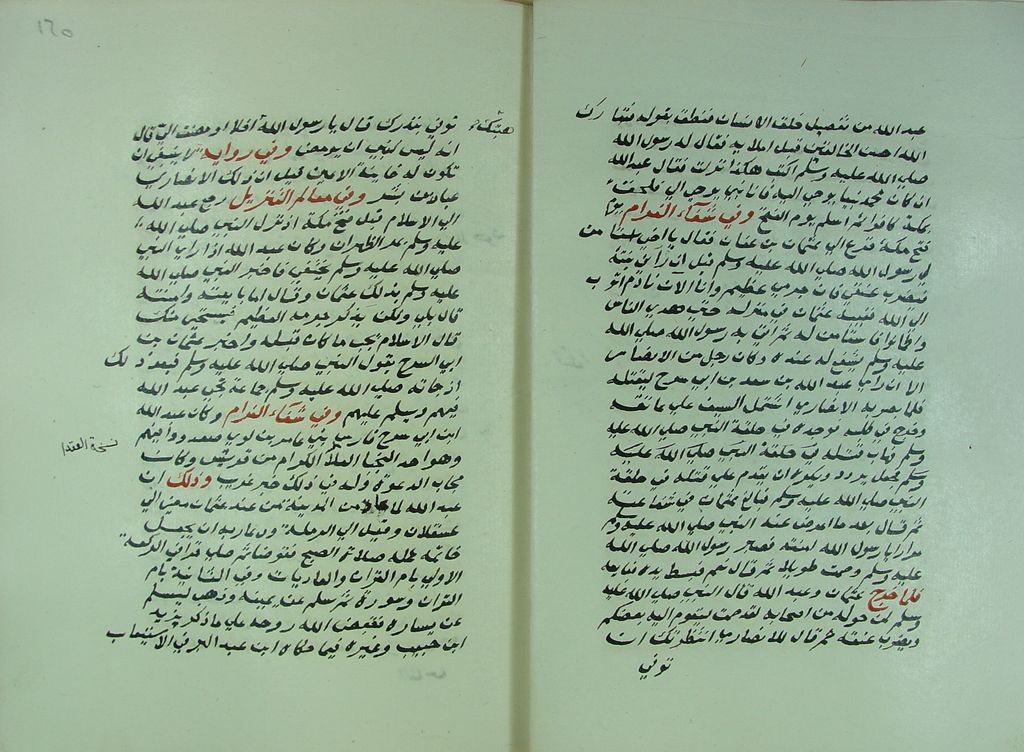 عبد الله من تفصيل خلق الانسان فنطق بقوله فتبارك
الله احسن الخالقين قبل املايه فقال له رسول الله
صلى الله عليه وسلم اكتب هكذا نزلت فقال عبد الله
ان كان محمد نبيا يوحى اليه فانا نبي يوحى الي فلحق
بمكة كافرا ثم اسلم يوم الفتح وفي شفاء الغرام يوم
فتح مكة فزع الى عثمان بن عفان فقال يا اخي استامن
لي رسول الله صلى الله عليه وسلم قبل ان راني عنده
فيضرب عنقي فان جرمي عظيم وانا الان نادم اتوب
الى الله فغيبه عثمان في منزله حتى هدي الناس
واطمانوا فاستامن له ثم اتى به رسول الله صلى الله
عليه وسلم يشفع له عنده وكان رجل من الانصار
الا ان راى عبد الله بن سعد بن ابي سرح ليقتله
فلما بصر به الانصاري اشتمل السيف على عاتقه
وخرج في طلبه فوجده في حلقة النبي صلى الله عليه
وسلم فهاب قتله في حلقة النبي صلى الله عليه
وسلم فجعل يتردد ويكره ان يقدم عليه في حلقة
النبي صلى الله عليه وسلم فبالغ عثمان في شفاعته
ثم قال بعد ما اعرض عنه النبي صلى الله عليه وسلم
مرارا يا رسول الله امنته فصبر رسول الله صلى الله
عليه وسلم وصمت طويلا ثم قال نعم فبسط يده فبايعه
فلما خرج عثمان وعبد الله قال النبي صلى الله عليه
وسلم لمن حوله من اصحابه لقد صمت ليقوم اليه بعضكم
ويضرب عنقه ثم قال للانصاري انتظرتك ان
توفي
١٢٥
هبتك
توفي بنذرك قال يا رسول الله افلا اومضت الي قال
انه ليس لنبي ان يومض وفي رواية لا ينبغي ان
تكون له خاينة الاعين قيل ان ذلك الانصاري
عباد بن بشر وفي معالم التنزيل رجع عبد الله
الى الاسلام قبل فتح مكة اذ نزل النبي صلى الله
عليه وسلم بمر الظهران وكان عبد الله اذا راى النبي
صلى الله عليه وسلم يختفي فاخبر النبي صلى الله
عليه وسلم بذلك عثمان وقال اما بايعته وامنته
قال بلى ولكن يذكر جرمه العظيم فيستحي منك
قال الاسلام يجب ما كان قبله واخبر عثمان بن
ابي السرح بقول النبي صلى الله عليه وسلم فبعد ذلك
اذ جاته صلى الله عليه وسلم جماعة يجي عبد الله
بينهم ويسلم عليهم وفي شفاء الغرام وكان عبد الله
ابن ابي سرح فارس بني عامر بن لوي معدود فيهم
نسخة المقدم
وهو احد النجبا العقلا الكرام من قريش وكان
مجاب الدعوة وله في ذلك خبر غريب وذلك ان
عبد الله لما عاد من المدينة من عند عثمان مضى الى
عسقلان وقيل الى الرملة ودعا ربه ان يجعل
خاتمة عمله صلاة الصبح فتوضا ثم صلى فقرا في الركعة
الاولى بام القران والعاديات وفي الثانية بام
القران وسورة ثم سلم عن يمينه وذهب ليسلم
عن يساره فقبض الله روحه على ما ذكر يزيد
ابن حبيب وغيره فيما حكاه ابن عبد البر في الاستيعاب